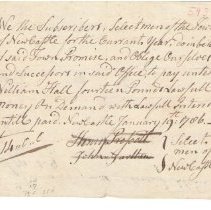 We the Subscribers, Select men of the Town
of New Castle for the Currant Year, in behalf
of said Town Promise, and Oblige Our selves
and Successors in said Office to pay unto
William Hall fourteen Pounds Lawfull
money On Demand with Lawfull Interest
untill paid. New Castle January 19. 1786.
Henry Prescutt
Select
men of
New Castle